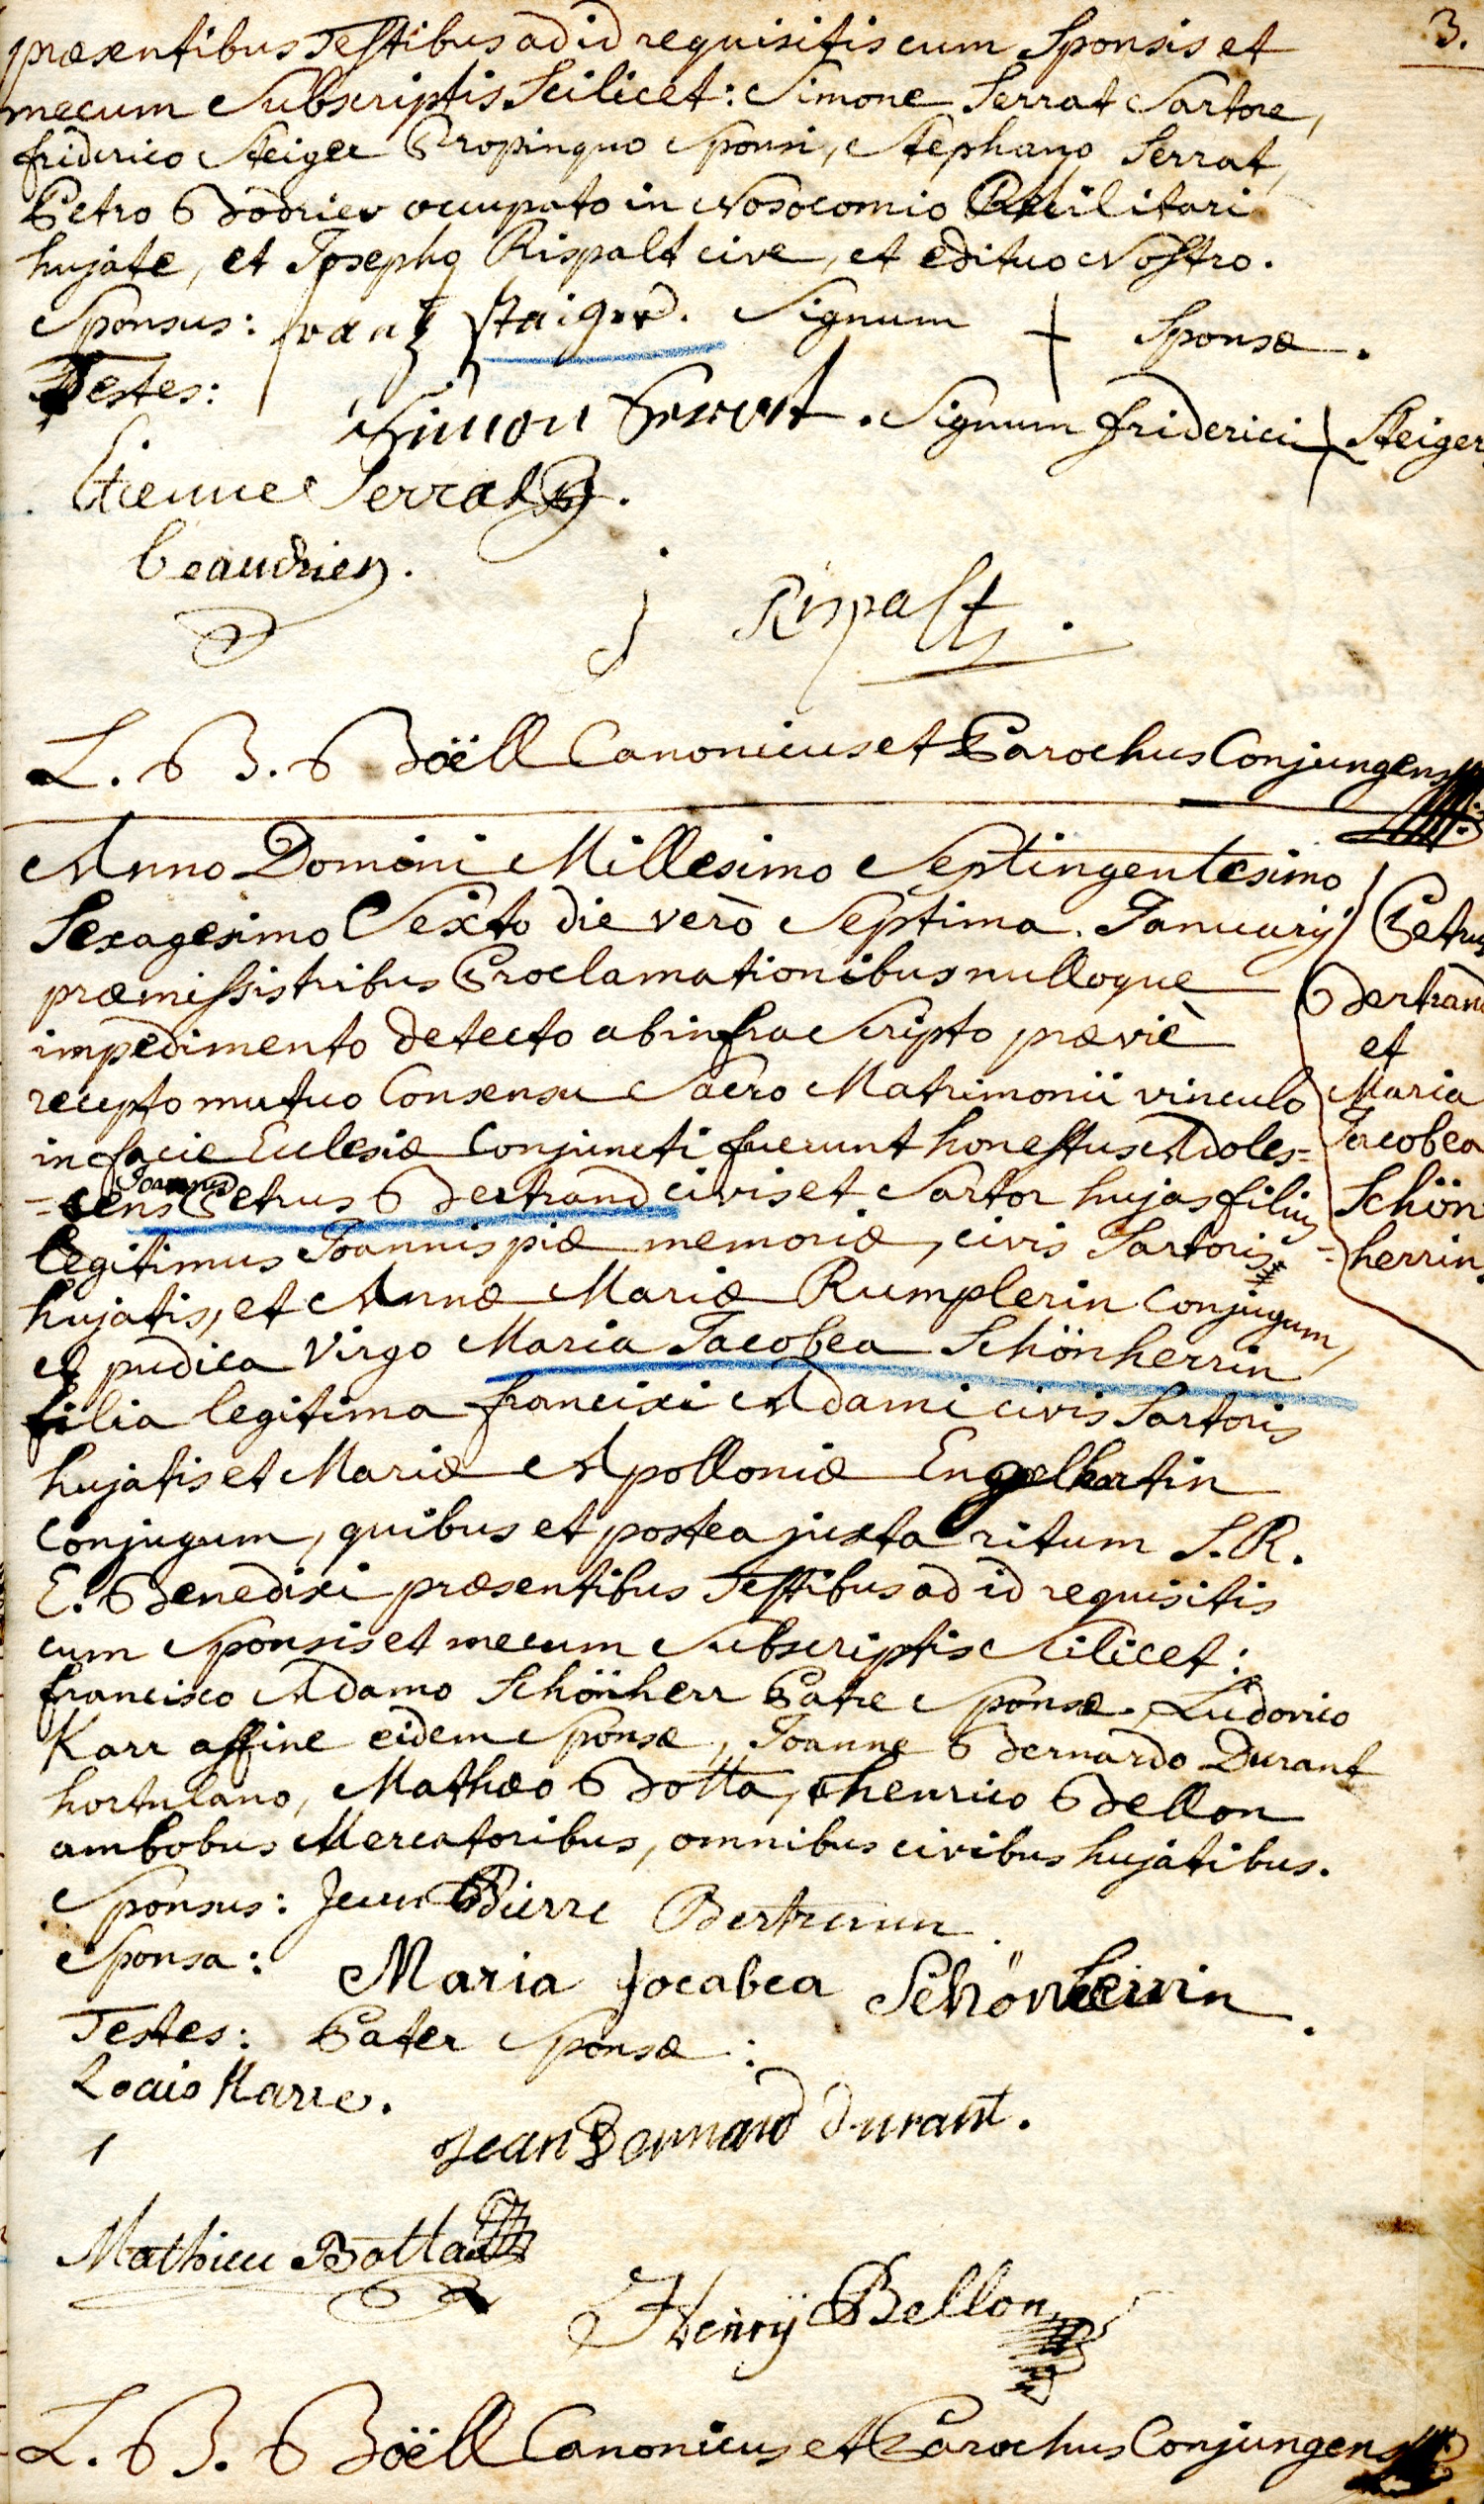 3.
præsentibus Testibus ad id requisitis cum Sponsis et
mecum Subscriptis Scilicet: Simone Serrat Sartore,
friderico Steiger Propinquo Sponsi, Stephano Serrat,
Petro Bodrier occupato in Nosocomio Militari
hujate, et Josepho Rispalt cive, et edituo Nostro.
Sponsus: frantz staiger. Signum + Sponsæ.
Testes:
Simon Serrat. Signum friderici + Steiger
Etienne Serrat.
beaudrien.
J Rispalt.
L. B. Boëll Canonicus et Parochus Conjungens
Anno Domini Millesimo Septingentesimo
Sexagesimo Sexto die verò Septima Januarij
præmissis tribus Proclamationibus nulloque
impedimento detecto ab infra Scripto præviè
recepto mutuo Consensu Sacro Matrimonii vinculo
in facie Ecclesiæ Conjuncti fuerunt honestus Adoles=
=cens Joannes Petrus Bertrand civis et Sartor hujas filius
legitimus Joannis piæ memoriæ, civis Sartoris
hujatis, et Annæ Mariæ Rumplerin Conjugum,
et pudica Virgo Maria Jacobea Schönherrin
filia legitima francisci Adami civis Sartoris
hujatis et Mariæ Apolloniæ Engelhartin
Conjugum, quibus et postea juxta ritum S. R.
E. Benedixi præsentibus Testibus ad id requisitis
cum Sponsis et mecum Subscriptis Scilicet:
francisco Adamo Schönherr Patre Sponsæ, Ludovico
Karr affine eidem Sponsæ, Joanne Bernardo Durant
hortulano, Mathæo Botta, henrico Bellon
ambobus Mercatoribus, omnibus civibus hujatibus.
Petrus
Bertrand
et
Maria
Jacobea
Schön
=herrin.
Sponsus: Jean Pierre Bertrann.
Sponsa: Maria Jocabea Schönherrin.
Testes: Pater Sponsæ:
Louis Karre.
Jean Bernard durant.
Mathieu Botta
Henrÿ Bellon
L. B. Boëll Canonicus et Parochus Conjungens